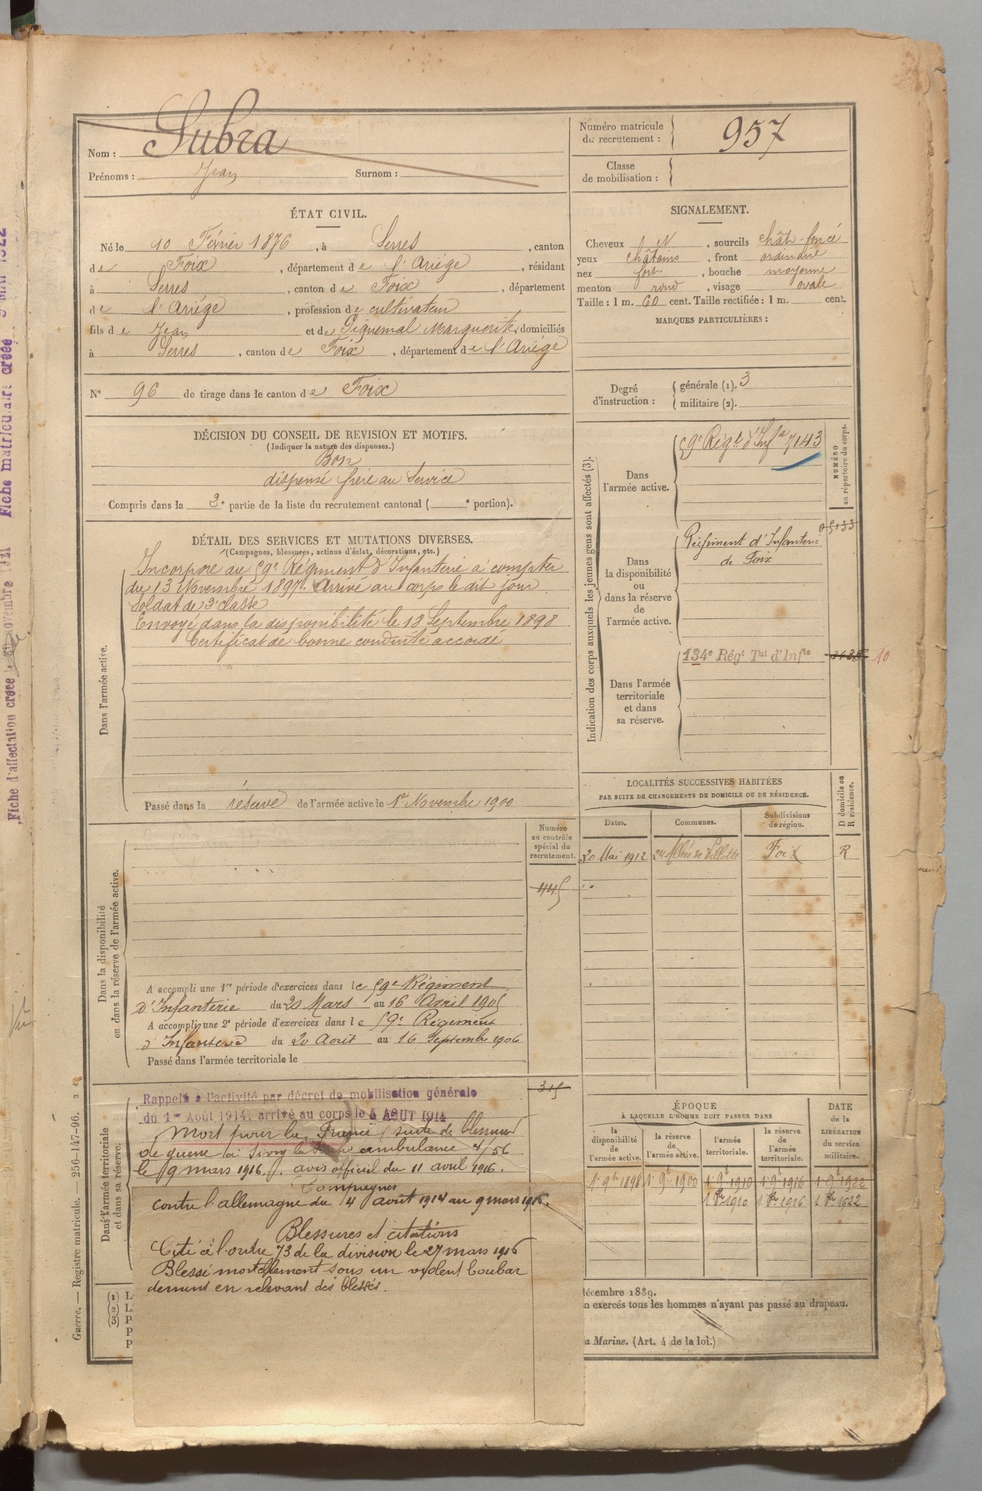 Nom : Subra
Prénoms : Jean Surnom :
Numéro matricule du recrutement : 957
Classe de mobilisation :
ÉTAT CIVIL.
Né le 10 Février 1876, à Serres, canton
de Foix, département de l'Ariège, résidant
à Serres, canton de Foix, département
de l'Ariège, profession de cultivateur
fils de Jean et de Piquemal Marguerite, domiciliés
à Serres, canton de Foix, département de l'Ariège
N° 96 de tirage dans le canton de Foix
SIGNALEMENT.
Cheveux N, sourcils chât-foncé
yeux châtains, front ordinaire
nez fort, bouche moyenne
menton rond, visage ovale
Taille : 1 m. 60 cent. Taille rectifiée : 1 m. cent.
MARQUES PARTICULIÈRES :
Degré d'instruction : générale (1). 3
militaire (2).
DÉCISION DU CONSEIL DE REVISION ET MOTIFS.
(Indiquer la nature des dispenses.)
Bon
dispensé frère au Service
Compris dans la 2e partie de la liste du recrutement cantonal ( e portion).
DÉTAIL DES SERVICES ET MUTATIONS DIVERSES.
(Campagnes, blessures, actions d'éclat, décorations, etc.)
Dans l'armée active.
Incorporé au 59e Régiment d'Infanterie à compter
du 13 Novembre 1897. Arrivé au corps le dit jour
Soldat de 2e classe
Envoyé dans la disponibilité le 18 Septembre 1898
Certificat de bonne conduite accordé
Passé dans la réserve de l'armée active le 1er Novembre 1900
Indication des corps auxquels les jeunes gens sont affectés (3).
NUMÉRO au répertoire du corps.
Dans l'armée active.
59e Régt d'Infie 7143
Dans la disponibilité ou dans la réserve de l'armée active.
Régiment d'Infanterie
de Foix
Dans l'armée territoriale et dans sa réserve.
134e Régt Tal d'Infie 10
LOCALITÉS SUCCESSIVES HABITÉES
PAR SUITE DE CHANGEMENTS DE DOMICILE OU DE RÉSIDENCE.
Dates. Communes. Subdivisions de région. D domicile ou R résidence.
20 Mai 1912 Foix R
Numéro au contrôle spécial du recrutement.
445
Dans la disponibilité ou dans la réserve de l'armée active.
A accompli une 1re période d'exercices dans le 59e Régiment
d'Infanterie du 20 Mars au 16 Avril 1905
A accompli une 2e période d'exercices dans le 59e Régiment
d'Infanterie du 20 Août au 16 Septembre 1906
Passé dans l'armée territoriale le
315
Dans l'armée territoriale et dans sa réserve.
Rappelé à l'activité par décret de mobilisation générale
du 1er Août 1914, arrivé au corps le 4 AOUT 1914
Mort pour la France, suite de blessures
de guerre ambulance 4/56
le 9 mars 1916. avis officiel du 11 avril 1916.
Campagnes
contre l'allemagne du 4 août 1914 au 9 mars 1916.
Blessures et citations
Cité à l'ordre 73 de la division le 27 mars 1916
Blessé mortellement sous un violent bombar
dement en relevant des blessés.
ÉPOQUE
À LAQUELLE L'HOMME DOIT PASSER DANS
la disponibilité de l'armée active. la réserve de l'armée active. l'armée territoriale. la réserve de l'armée territoriale.
DATE de la LIBÉRATION du service militaire.
1 9bre 1898 1 9bre 1900 1 9 1910 1 9 1916 1 9 1922
1 8bre 1910 1 8bre 1916 1 8bre 1922
décembre 1889.
n exercés tous les hommes n'ayant pas passé au drapeau.
a Marine. (Art. 4 de la loi.)
Guerre. — Registre matricule. — 256-147-96.
Fiche d'affectation créée
Fiche matriculaire créée